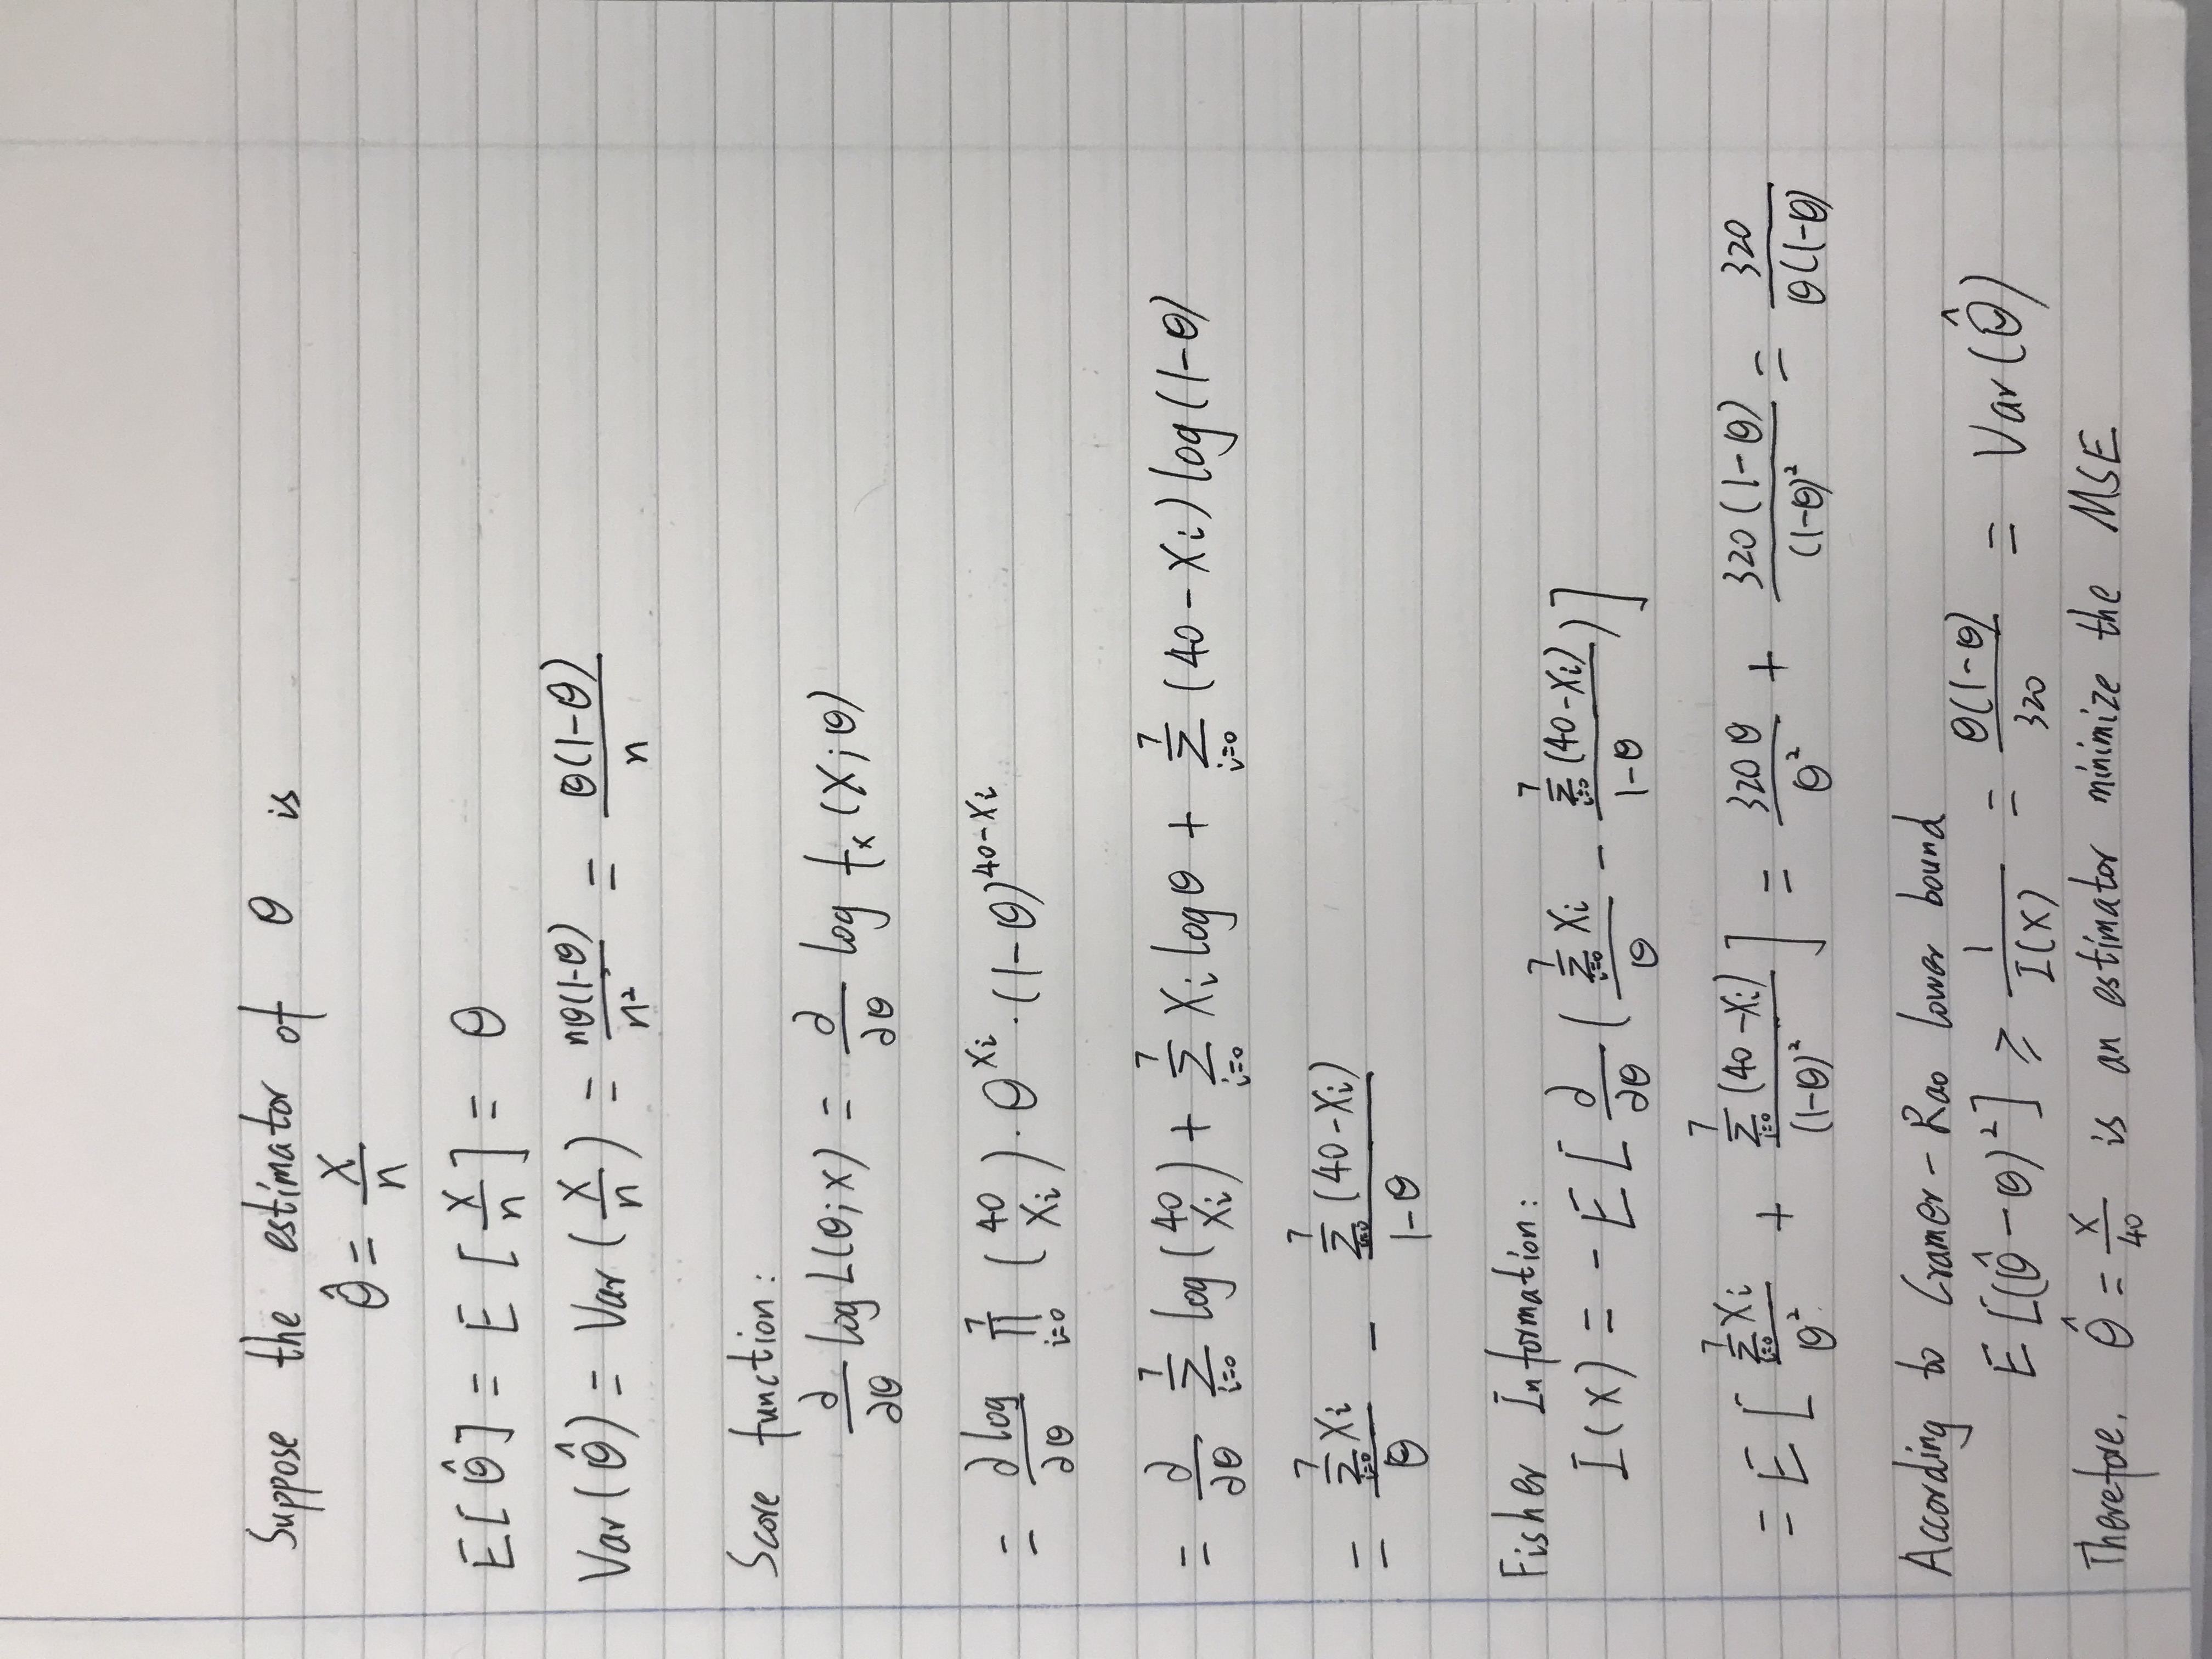 Suppose the estimator of θ is
θ̂ = X/n
E[θ̂] = E[X/n] = θ
Var(θ̂) = Var(X/n) = nθ(1-θ)/n² = θ(1-θ)/n
Score function:
∂/∂θ log L(θ;x) = ∂/∂θ log fₓ(X;θ)
= ∂ log/∂θ ∏_{i=0}^{7} (40 Xi) · θ^{Xi} · (1-θ)^{40-Xi}
= ∂/∂θ ∑_{i=0}^{7} log(40 Xi) + ∑_{i=0}^{7} Xi log θ + ∑_{i=0}^{7} (40-Xi) log(1-θ)
= ∑_{i=0}^{7} Xi/θ - ∑_{i=0}^{7} (40-Xi)/1-θ
Fisher Information:
I(x) = -E[∂/∂θ (∑_{i=0}^{7} Xi/θ - ∑_{i=0}^{7} (40-Xi)/1-θ)]
= E[∑_{i=0}^{7} Xi/θ² + ∑_{i=0}^{7} (40-Xi)/(1-θ)²] = 320θ/θ² + 320(1-θ)/(1-θ)² = 320/θ(1-θ)
According to Cramer-Rao lower bound
E[(θ̂-θ)²] ≥ 1/I(x) = θ(1-θ)/320 = Var(θ̂)
Therefore, θ̂ = X/40 is an estimator minimize the MSE